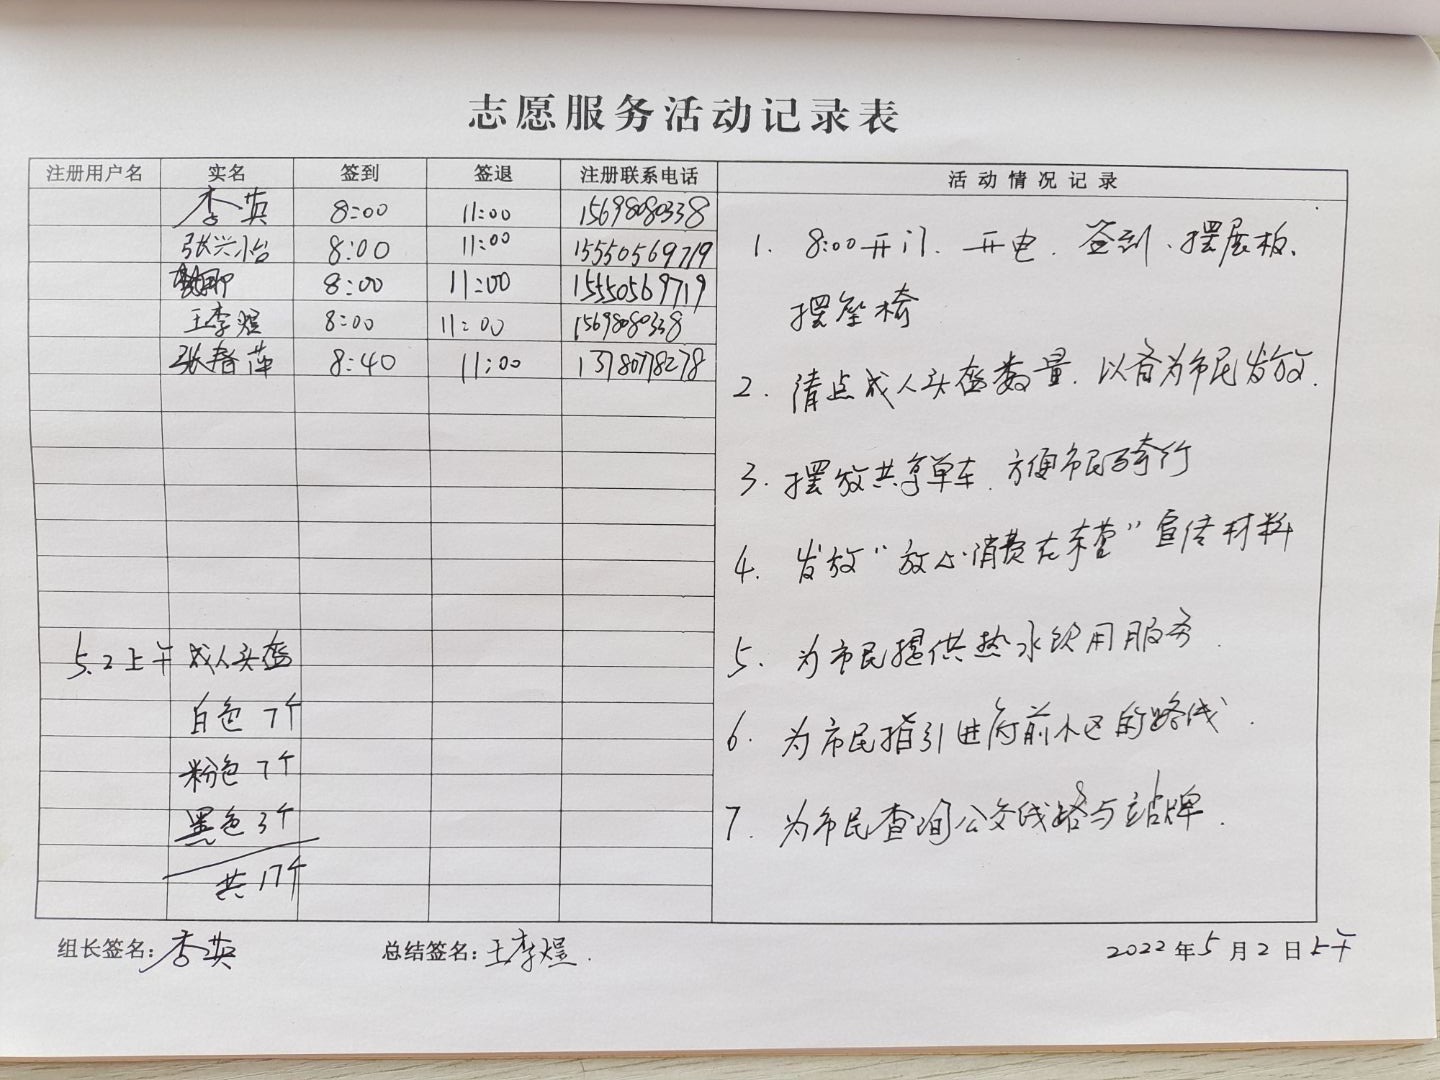 志愿服务活动记录表
注册用户名 实名 签到 签退 注册联系电话 活动情况记录
李英 8:00 11:00 15698080338
张兴怡 8:00 11:00 15550569719
8:00 11:00 15550569719
王李煜 8:00 11:00 15698080338
张春萍 8:40 11:00 13780778278
5.2上午 成人头盔
白色 7个
粉色 7个
黑色 3个
共 17个
1. 8:00开门、开电、签到、摆展板、
摆座椅
2. 清点成人头盔数量、以备为市民发放.
3. 摆放共享单车、方便市民骑行
4. 发放“放心消费在东营”宣传材料
5. 为市民提供热水饮用服务.
6. 为市民指引进府前小区的路线.
7. 为市民查询公交线路与站牌.
组长签名:李英 总结签名:王李煜. 2022年5月2日上午